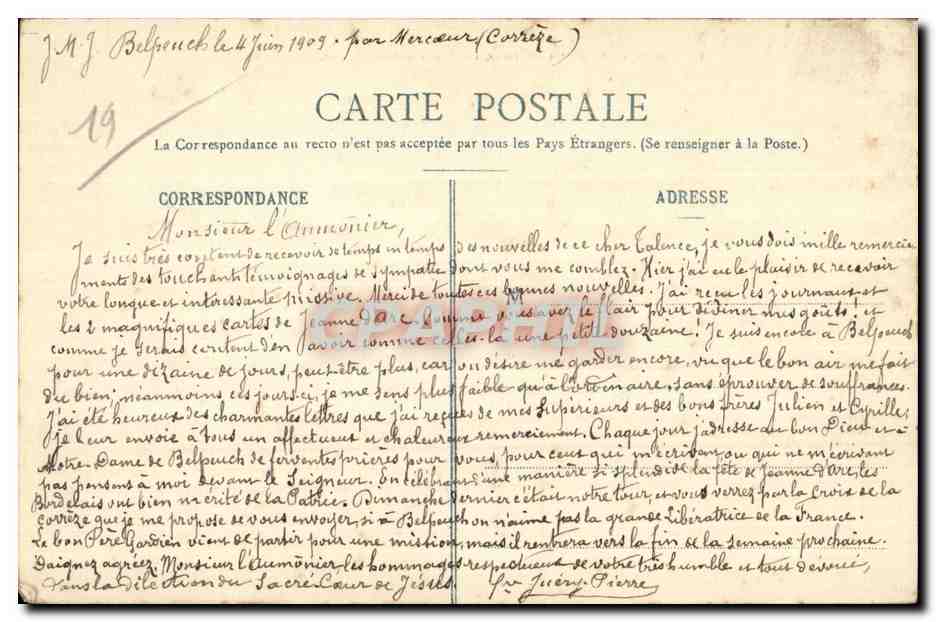 J M J Belpeuch le 4 Juin 1909 - par Mercœur (Corrèze)
19
CARTE POSTALE
La Correspondance au recto n'est pas acceptée par tous les Pays Étrangers. (Se renseigner à la Poste.)
CORRESPONDANCE
ADRESSE
Monsieur l'Aumônier,
Je suis très content de recevoir de temps en temps des nouvelles de ce cher Talence, je vous dois mille remercie
ments des touchants témoignages de sympathie dont vous me comblez. Hier j'ai eu le plaisir de recevoir
votre longue et intéressante missive. Merci de toutes ces bonnes nouvelles. J'ai reçu les journaux et
les 2 magnifiques cartes de Jeanne d'Arc. Comme vous avez le flair pour deviner mes goûts! et
comme je serais content d'en avoir comme celles-là une petite douzaine! Je suis encore à Belpeuch
pour une dizaine de jours, peut-être plus, car on désire me garder encore, vu que le bon air me fait
du bien; néanmoins, ces jours-ci, je me sens plus faible qu'à l'ordinaire, sans éprouver de souffrances.
J'ai été heureux des charmantes lettres que j'ai reçues de mes Supérieurs et des bons frères Julien et Cyrille;
je leur envoie à tous un affectueux et chaleureux remerciement. Chaque jour j'adresse au bon Dieu et à
Notre-Dame de Belpeuch de ferventes prières pour vous, pour ceux qui m'écrivent, ou qui ne m'écrivant
pas pensent à moi devant le Seigneur. En célébrant d'une manière si splendide la fête de Jeanne d'Arc, les
Bordelais ont bien mérité de la Patrie. Dimanche dernier c'était notre tour, et vous verrez par la Croix de la
Corrèze que je me propose de vous envoyer, si à Belpeuch on n'aime pas la grande Libératrice de la France.
Le bon Père Gardien vient de partir pour une mission, mais il rentrera vers la fin de la semaine prochaine.
Daignez agréer, Monsieur l'aumônier les hommages respectueux de votre très humble et tout dévoué,
dans la dilection du Sacré Cœur de Jésus Pierre